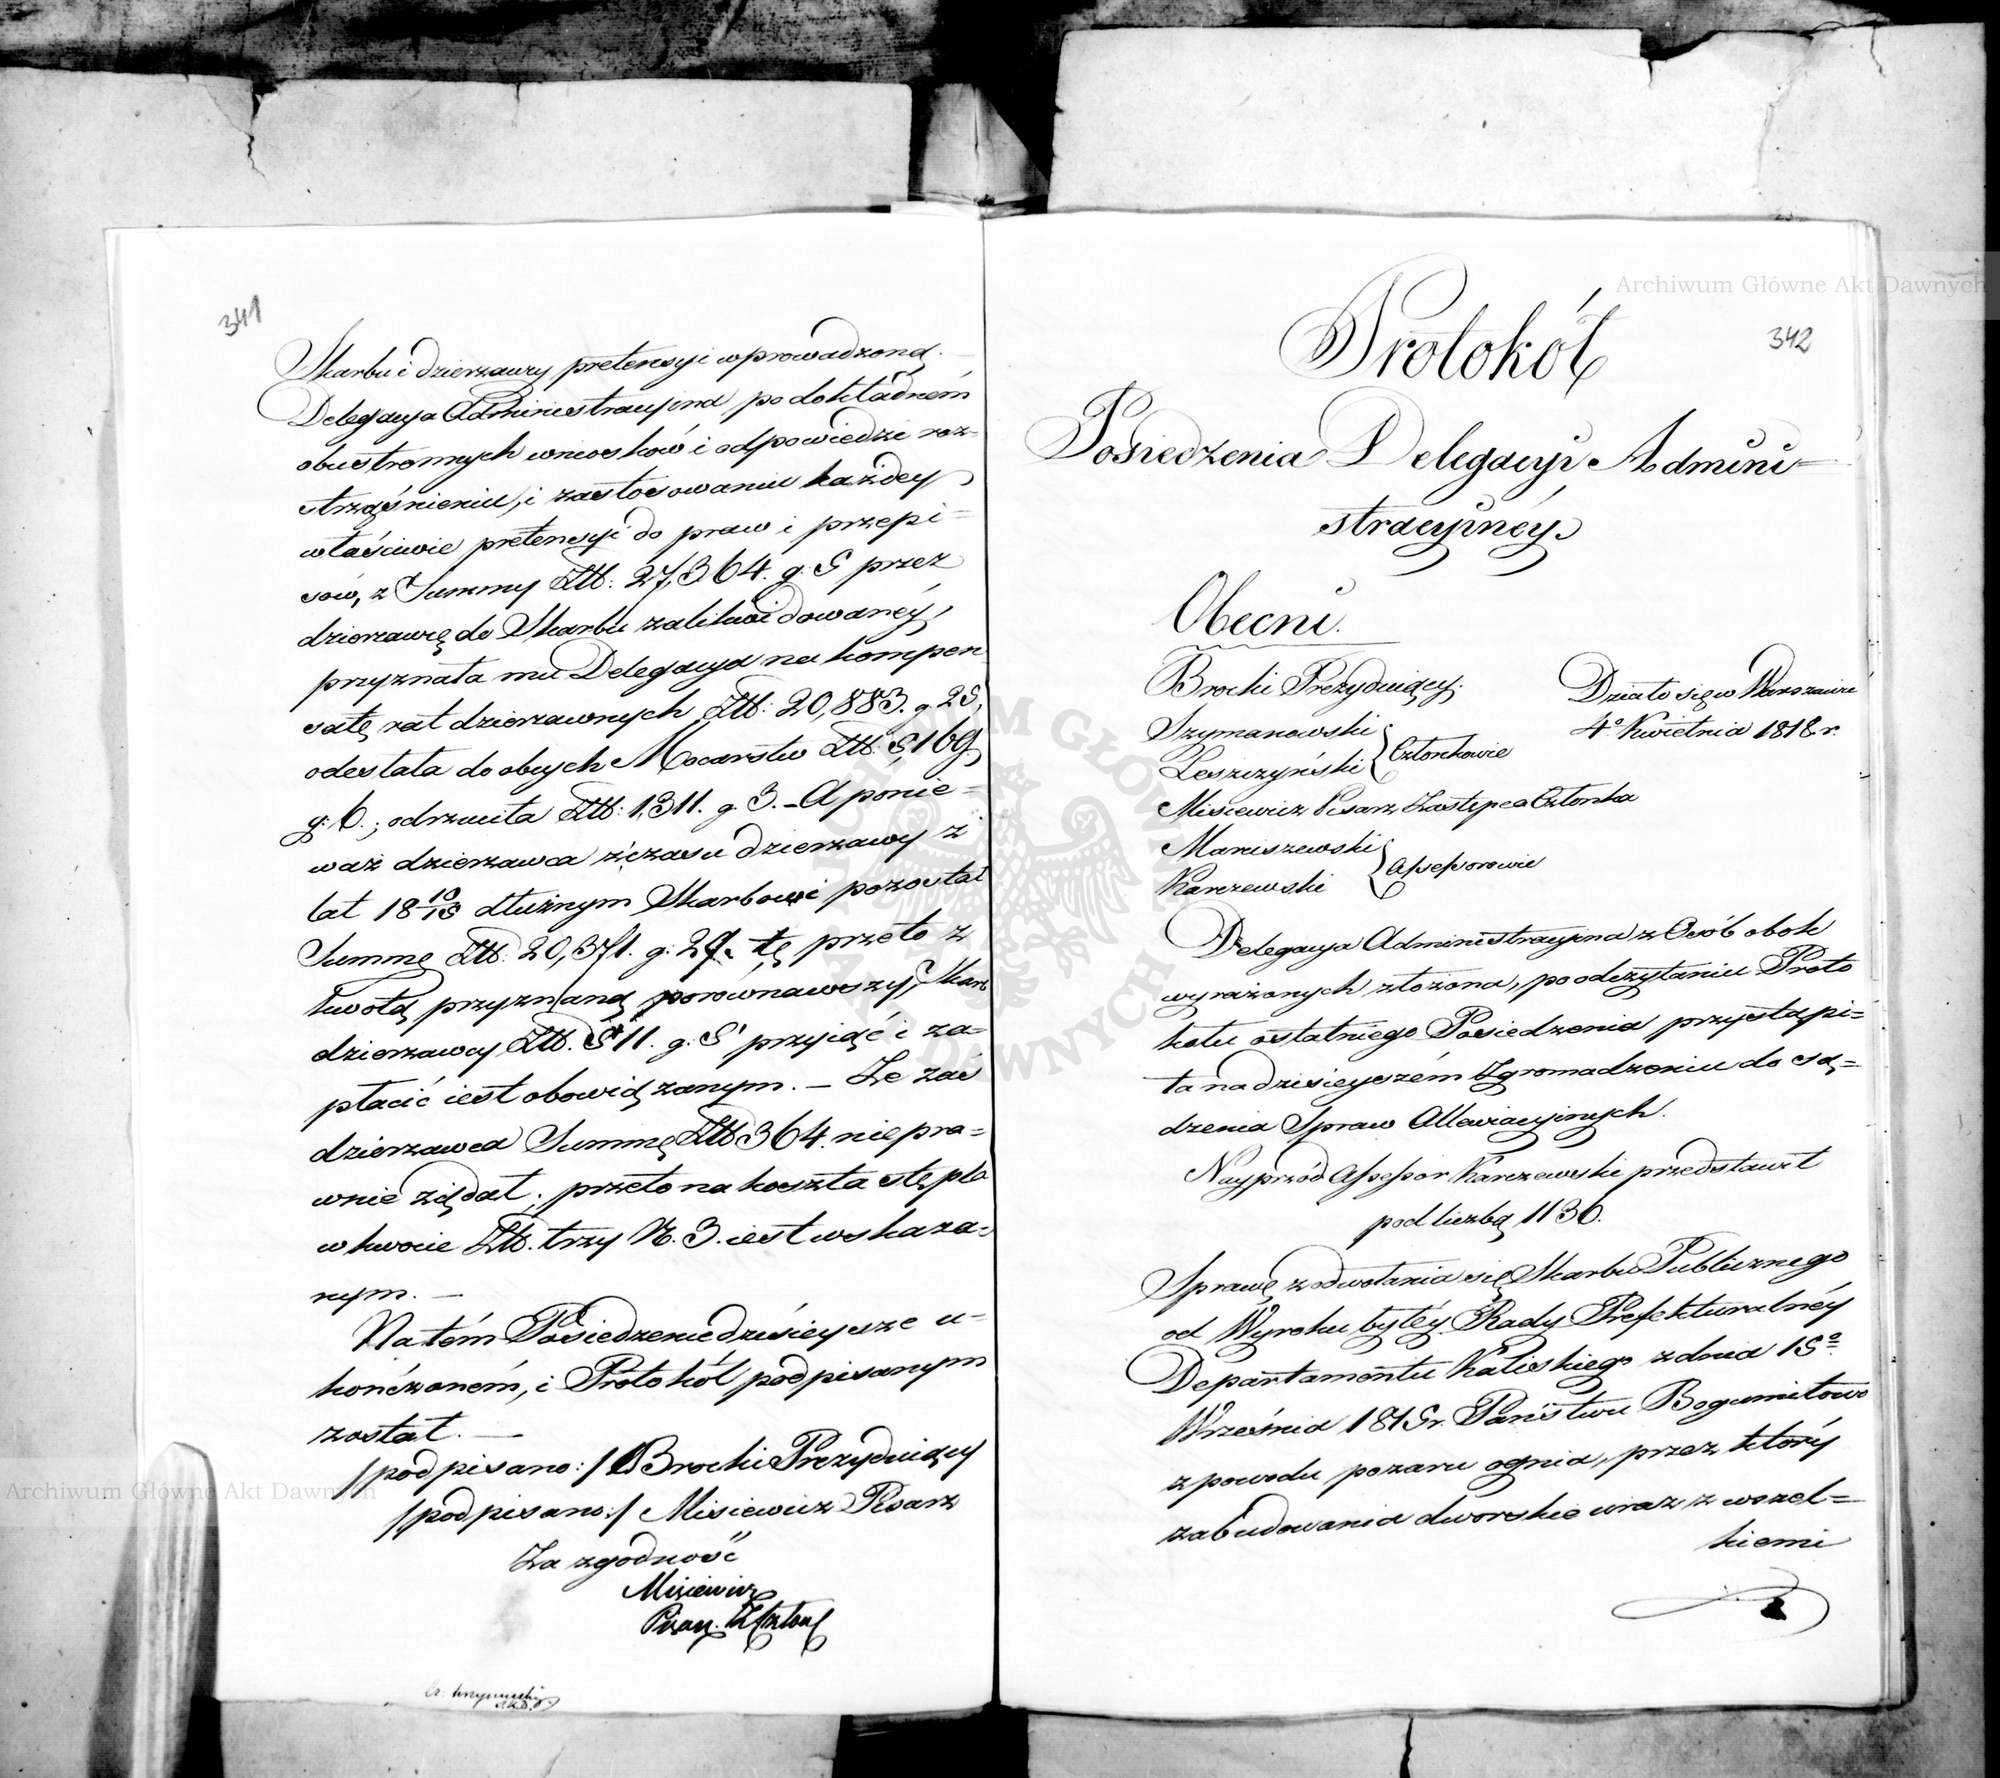 341
Skarbu i dzierzawy pretensyi wprowadzoną. —
Delegacya Administracyina po dokładném
obustronnych wniosków i odpowiedzi roz-
strząśnieniu, i zastosowaniu każdey
właściwie pretensyi do praw i przepi-
sów, z Summy Złł: 27,364. g. 5 przez
dzierzawcę do Skarbu zalikwidowanéy,
przyznała mu Delegacya na kompen
satę rat dzierzawnych Złł: 20,883. g. 25,
odesłała do obcych Mocarstw Złł: 5,169
g: 6.; odrzuciła Złł: 1,311. g. 3. — A ponie-
waż dzierzawca z czasu dzierzawy z
lat 18 10/15 dłużnym Skarbowi pozostał
Summę Złł: 20,371. g: 29. tę przeto z
kwotą przyznaną porównawszy, Skarb
dzierzawcy Złł. 511. g. 5 przyiąć i za-
płacić iest obowiązanym. — Że zaś
dzierzawca Summę Złł 364. niepra-
wnie żądał, przeto na koszta stępla
w kwocie Złł. trzy N. 3. iest wskaza-
nym. —
Na tém Posiedzenie dzisieysze u-
kończoném, i Protokół podpisanym
został. —
/podpisano:/ Brocki Prezyduiący
/podpisano:/ Misiewicz Pisarz
Za zgodność
Misiewicz
Pisarz
342
Protokół
Posiedzenia Delegacyi Admini-
stracyinéy.
Obecni.
Brocki Prezyduiący.
Szymanowski
Leszczyński
Członkowie
Misiewicz Pisarz Zastępca Członka
Maniszewski
Karczewski
Assessorowie
Działo się w Warszawie
4º Kwietnia 1818 r.
Delegacya Administracyina z Osób obok
wyrażonych złożona, po odczytaniu Proto
kołu ostatniego Posiedzenia przystąpi-
ła na dzisieyszém Zgromadzeniu do są-
dzenia Spraw Allewiacyinych.
Nayprzód Assessor Karczewski przedstawił
pod liczbą 1136.
Sprawę z odwołania się Skarbu Publicznego
od Wyroku byłéy Rady Prefekturalnéy
Departamentu Kaliskiego z dnia 15º
Września 1815 r. Państwu Bogumiłowo
z powodu pożaru ognia, przez który
zabudowania dworskie wraz z wszel-
kiemi
Archiwum Główne Akt Dawnych
Archiwum Główne Akt Dawnych
ARCHIWUM GŁÓWNE AKT DAWNYCH